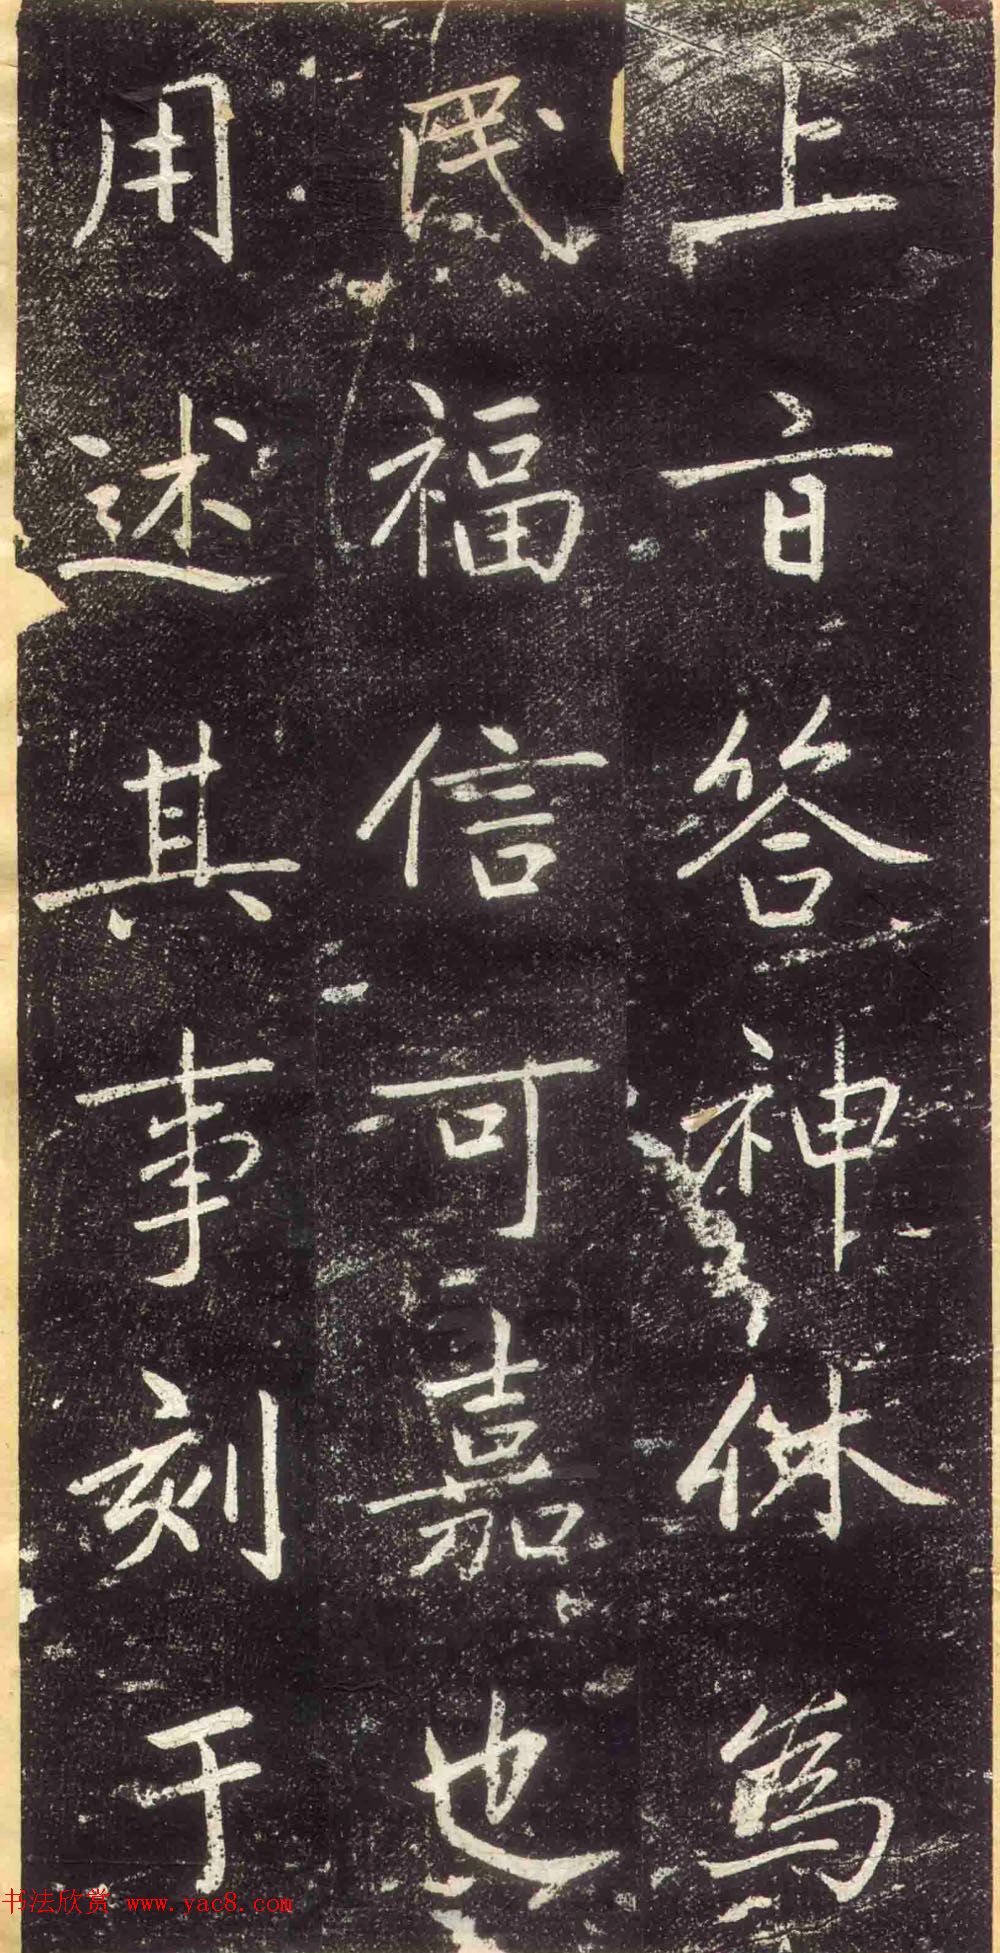 上旨答神休為
民福信可嘉也
用述其事刻于
书法欣赏 www.yac8.com